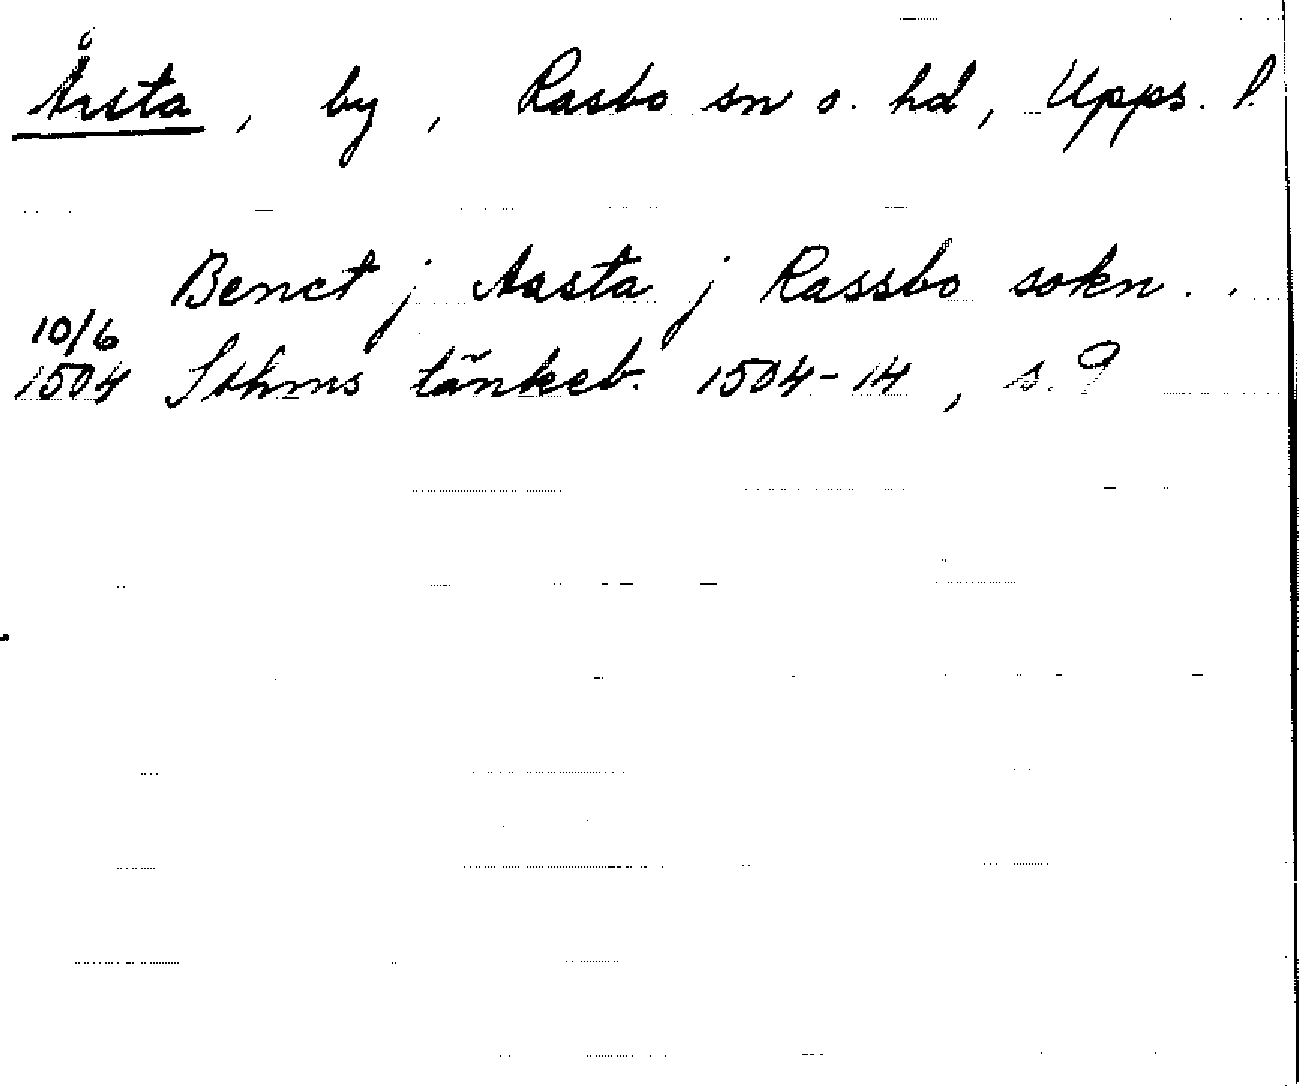 Årsta, by, Rasbo sn o. hd, Upps. l.
Benct j Aasta j Rassbo sokn..
10/6
1504 Sthms tänkeb. 1504-14, s. 9